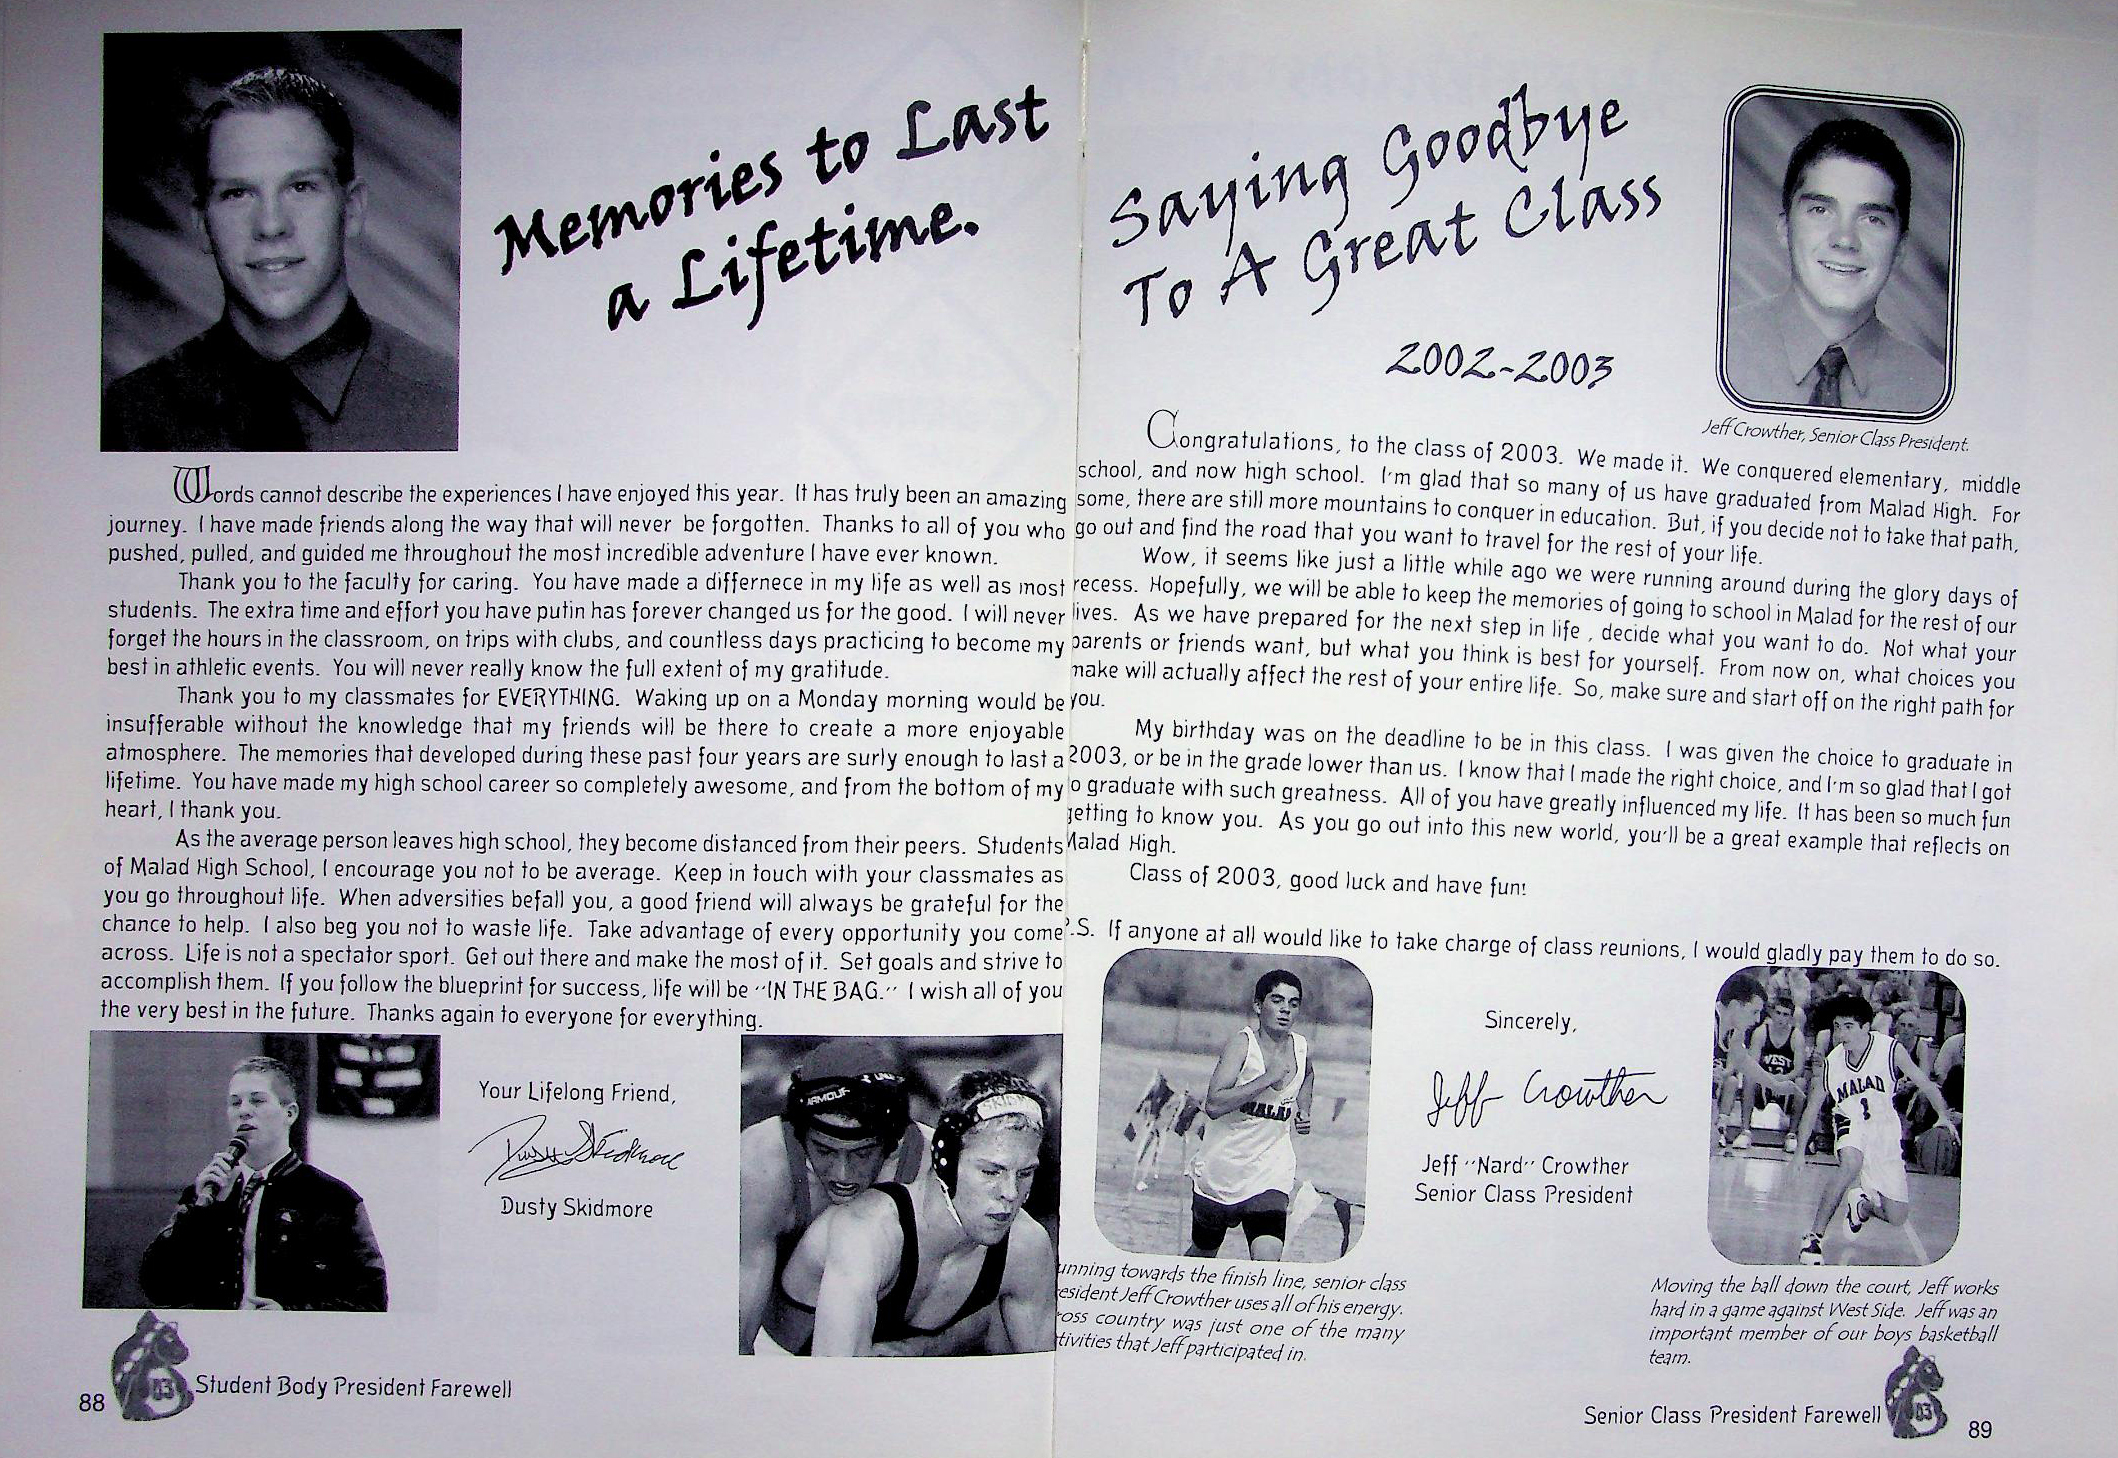 Memories to Last
a Lifetime.
Words cannot describe the experiences I have enjoyed this year. It has truly been an amazing
journey. I have made friends along the way that will never be forgotten. Thanks to all of you who
pushed, pulled, and guided me throughout the most incredible adventure I have ever known.
Thank you to the faculty for caring. You have made a differnece in my life as well as most
students. The extra time and effort you have putin has forever changed us for the good. I will never
forget the hours in the classroom, on trips with clubs, and countless days practicing to become my
best in athletic events. You will never really know the full extent of my gratitude.
Thank you to my classmates for EVERYTHING. Waking up on a Monday morning would be
insufferable without the knowledge that my friends will be there to create a more enjoyable
atmosphere. The memories that developed during these past four years are surly enough to last a
lifetime. You have made my high school career so completely awesome, and from the bottom of my
heart, I thank you.
As the average person leaves high school, they become distanced from their peers. Students
of Malad High School, I encourage you not to be average. Keep in touch with your classmates as
you go throughout life. When adversities befall you, a good friend will always be grateful for the
chance to help. I also beg you not to waste life. Take advantage of every opportunity you come
across. Life is not a spectator sport. Get out there and make the most of it. Set goals and strive to
accomplish them. If you follow the blueprint for success, life will be "IN THE BAG." I wish all of you
the very best in the future. Thanks again to everyone for everything.
Your Lifelong Friend,
Dusty Skidmore
Dusty Skidmore
88
03
Student Body President Farewell
Saying Goodbye
To A Great Class
2002-2003
Jeff Crowther, Senior Class President.
Congratulations, to the class of 2003. We made it. We conquered elementary, middle
school, and now high school. I'm glad that so many of us have graduated from Malad High. For
some, there are still more mountains to conquer in education. But, if you decide not to take that path,
go out and find the road that you want to travel for the rest of your life.
Wow, it seems like just a little while ago we were running around during the glory days of
recess. Hopefully, we will be able to keep the memories of going to school in Malad for the rest of our
lives. As we have prepared for the next step in life , decide what you want to do. Not what your
parents or friends want, but what you think is best for yourself. From now on, what choices you
make will actually affect the rest of your entire life. So, make sure and start off on the right path for
you.
My birthday was on the deadline to be in this class. I was given the choice to graduate in
2003, or be in the grade lower than us. I know that I made the right choice, and I'm so glad that I got
o graduate with such greatness. All of you have greatly influenced my life. It has been so much fun
getting to know you. As you go out into this new world, you'll be a great example that reflects on
Malad High.
Class of 2003, good luck and have fun!
P.S. If anyone at all would like to take charge of class reunions, I would gladly pay them to do so.
Sincerely,
Jeff Crowther
Jeff "Nard" Crowther
Senior Class President
MALAD
WEST
MALAD
1
unning towards the finish line, senior class
esident Jeff Crowther uses all of his energy.
ross country was just one of the many
tivities that Jeff participated in.
Moving the ball down the court, Jeff works
hard in a game against West Side. Jeff was an
important member of our boys basketball
team.
Senior Class President Farewell
03
89